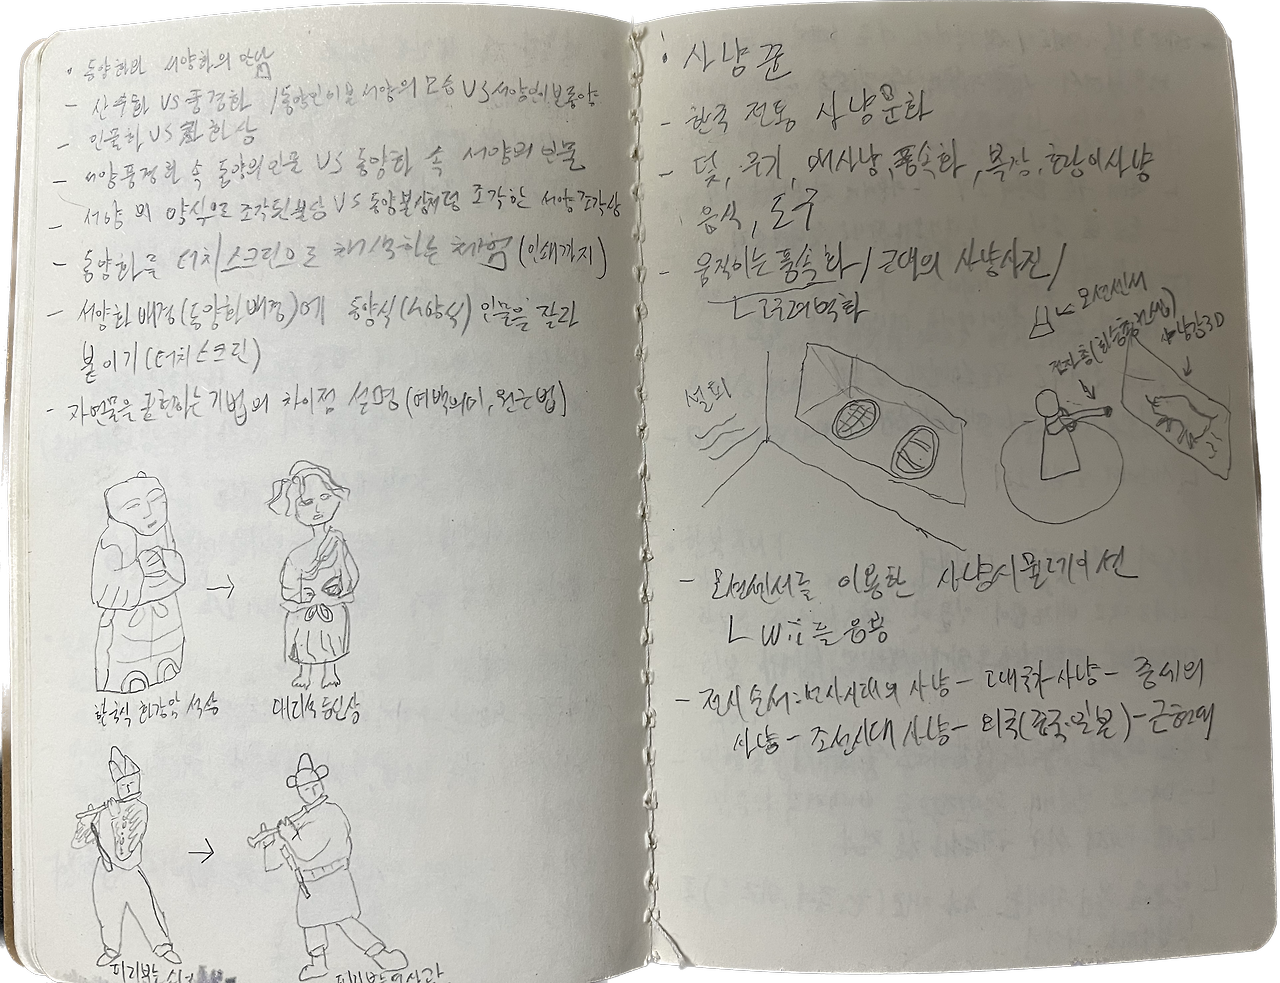 · 동양화와 서양화의 만남
- 산수화 VS 풍경화 / 동양인이 본 서양의 모습 VS 서양인이 본 동양
인물화 VS 초상
- 서양 풍경화 속 동양의 인물 VS 동양화 속 서양의 인물
- 서양의 양식으로 조각된 불상 VS 동양불상처럼 조각한 서양조각상
- 동양화를 터치스크린으로 채색하는 체험 (인쇄까지)
- 서양화배경(동양화배경)에 동양식(서양식) 인물을 잘라
붙이기 (터치스크린)
- 자연물을 표현하는 기법의 차이점 설명 (여백의 미, 원근법)
한국식 석승
피리부는
피리부는 악사
· 사냥꾼
- 한국 전통 사냥문화
- 덫, 무기, 매사냥, 풍속화, 복장, 호랑이사냥
음식, 도구
- 움직이는 풍속화 / 근대의 사냥사진 /
ㄴ고구려벽화
모션센서
전자총(화승총)
사냥감3D
설피
- 모션센서를 이용한 사냥시뮬레이션
ㄴ Wii를 응용
- 전시순서: 선사시대의 사냥 - 고대국가 사냥 - 중세의
사냥 - 조선시대 사냥 - 외국(중국·일본) - 근현대